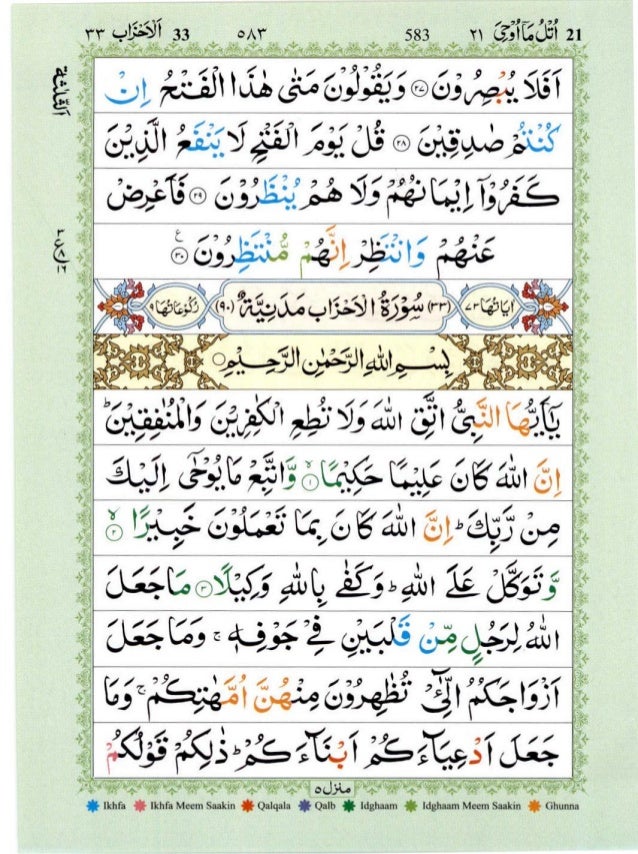 اَلْاَحْزَاب ٣٣ 33 ٥٨٣ 583 اُتْلُ مَاۤ اُوْحِیَ ٢١ 21
اَفَلَا یُبْصِرُوْنَ ﴿۲۷﴾ وَیَقُوْلُوْنَ مَتٰی هٰذَا الْفَتْحُ اِنْ
كُنْتُمْ صٰدِقِیْنَ ﴿۲۸﴾ قُلْ یَوْمَ الْفَتْحِ لَا یَنْفَعُ الَّذِیْنَ
كَفَرُوْۤا اِیْمَانُهُمْ وَلَا هُمْ یُنْظَرُوْنَ ﴿۲۹﴾ فَاَعْرِضْ
عَنْهُمْ وَانْتَظِرْ اِنَّهُمْ مُّنْتَظِرُوْنَ ﴿۳۰﴾ ع
اٰیَاتُهَا ٧٣ (٣٣) سُوْرَةُ الْاَحْزَابِ مَدَنِیَّةٌ (٩٠) رُكُوْعَاتُهَا ٩
بِسْمِ اللّٰهِ الرَّحْمٰنِ الرَّحِیْمِ
یٰۤاَیُّهَا النَّبِیُّ اتَّقِ اللّٰهَ وَلَا تُطِعِ الْكٰفِرِیْنَ وَالْمُنٰفِقِیْنَ ؕ
اِنَّ اللّٰهَ كَانَ عَلِیْمًا حَكِیْمًا ﴿۱﴾ وَّاتَّبِعْ مَا یُوْحٰۤی اِلَیْكَ
مِنْ رَّبِّكَ ؕ اِنَّ اللّٰهَ كَانَ بِمَا تَعْمَلُوْنَ خَبِیْرًا ﴿۲﴾
وَّتَوَكَّلْ عَلَی اللّٰهِ ؕ وَكَفٰی بِاللّٰهِ وَكِیْلًا ﴿۳﴾ مَا جَعَلَ
اللّٰهُ لِرَجُلٍ مِّنْ قَلْبَیْنِ فِیْ جَوْفِهٖ ۚ وَمَا جَعَلَ
اَزْوَاجَكُمُ الّٰٓـِٔیْ تُظٰهِرُوْنَ مِنْهُنَّ اُمَّهٰتِكُمْ ۚ وَمَا
جَعَلَ اَدْعِیَآءَكُمْ اَبْنَآءَكُمْ ؕ ذٰلِكُمْ قَوْلُكُمْ
منزل ٥
Ikhfa Ikhfa Meem Saakin Qalqala Qalb Idghaam Idghaam Meem Saakin Ghunna